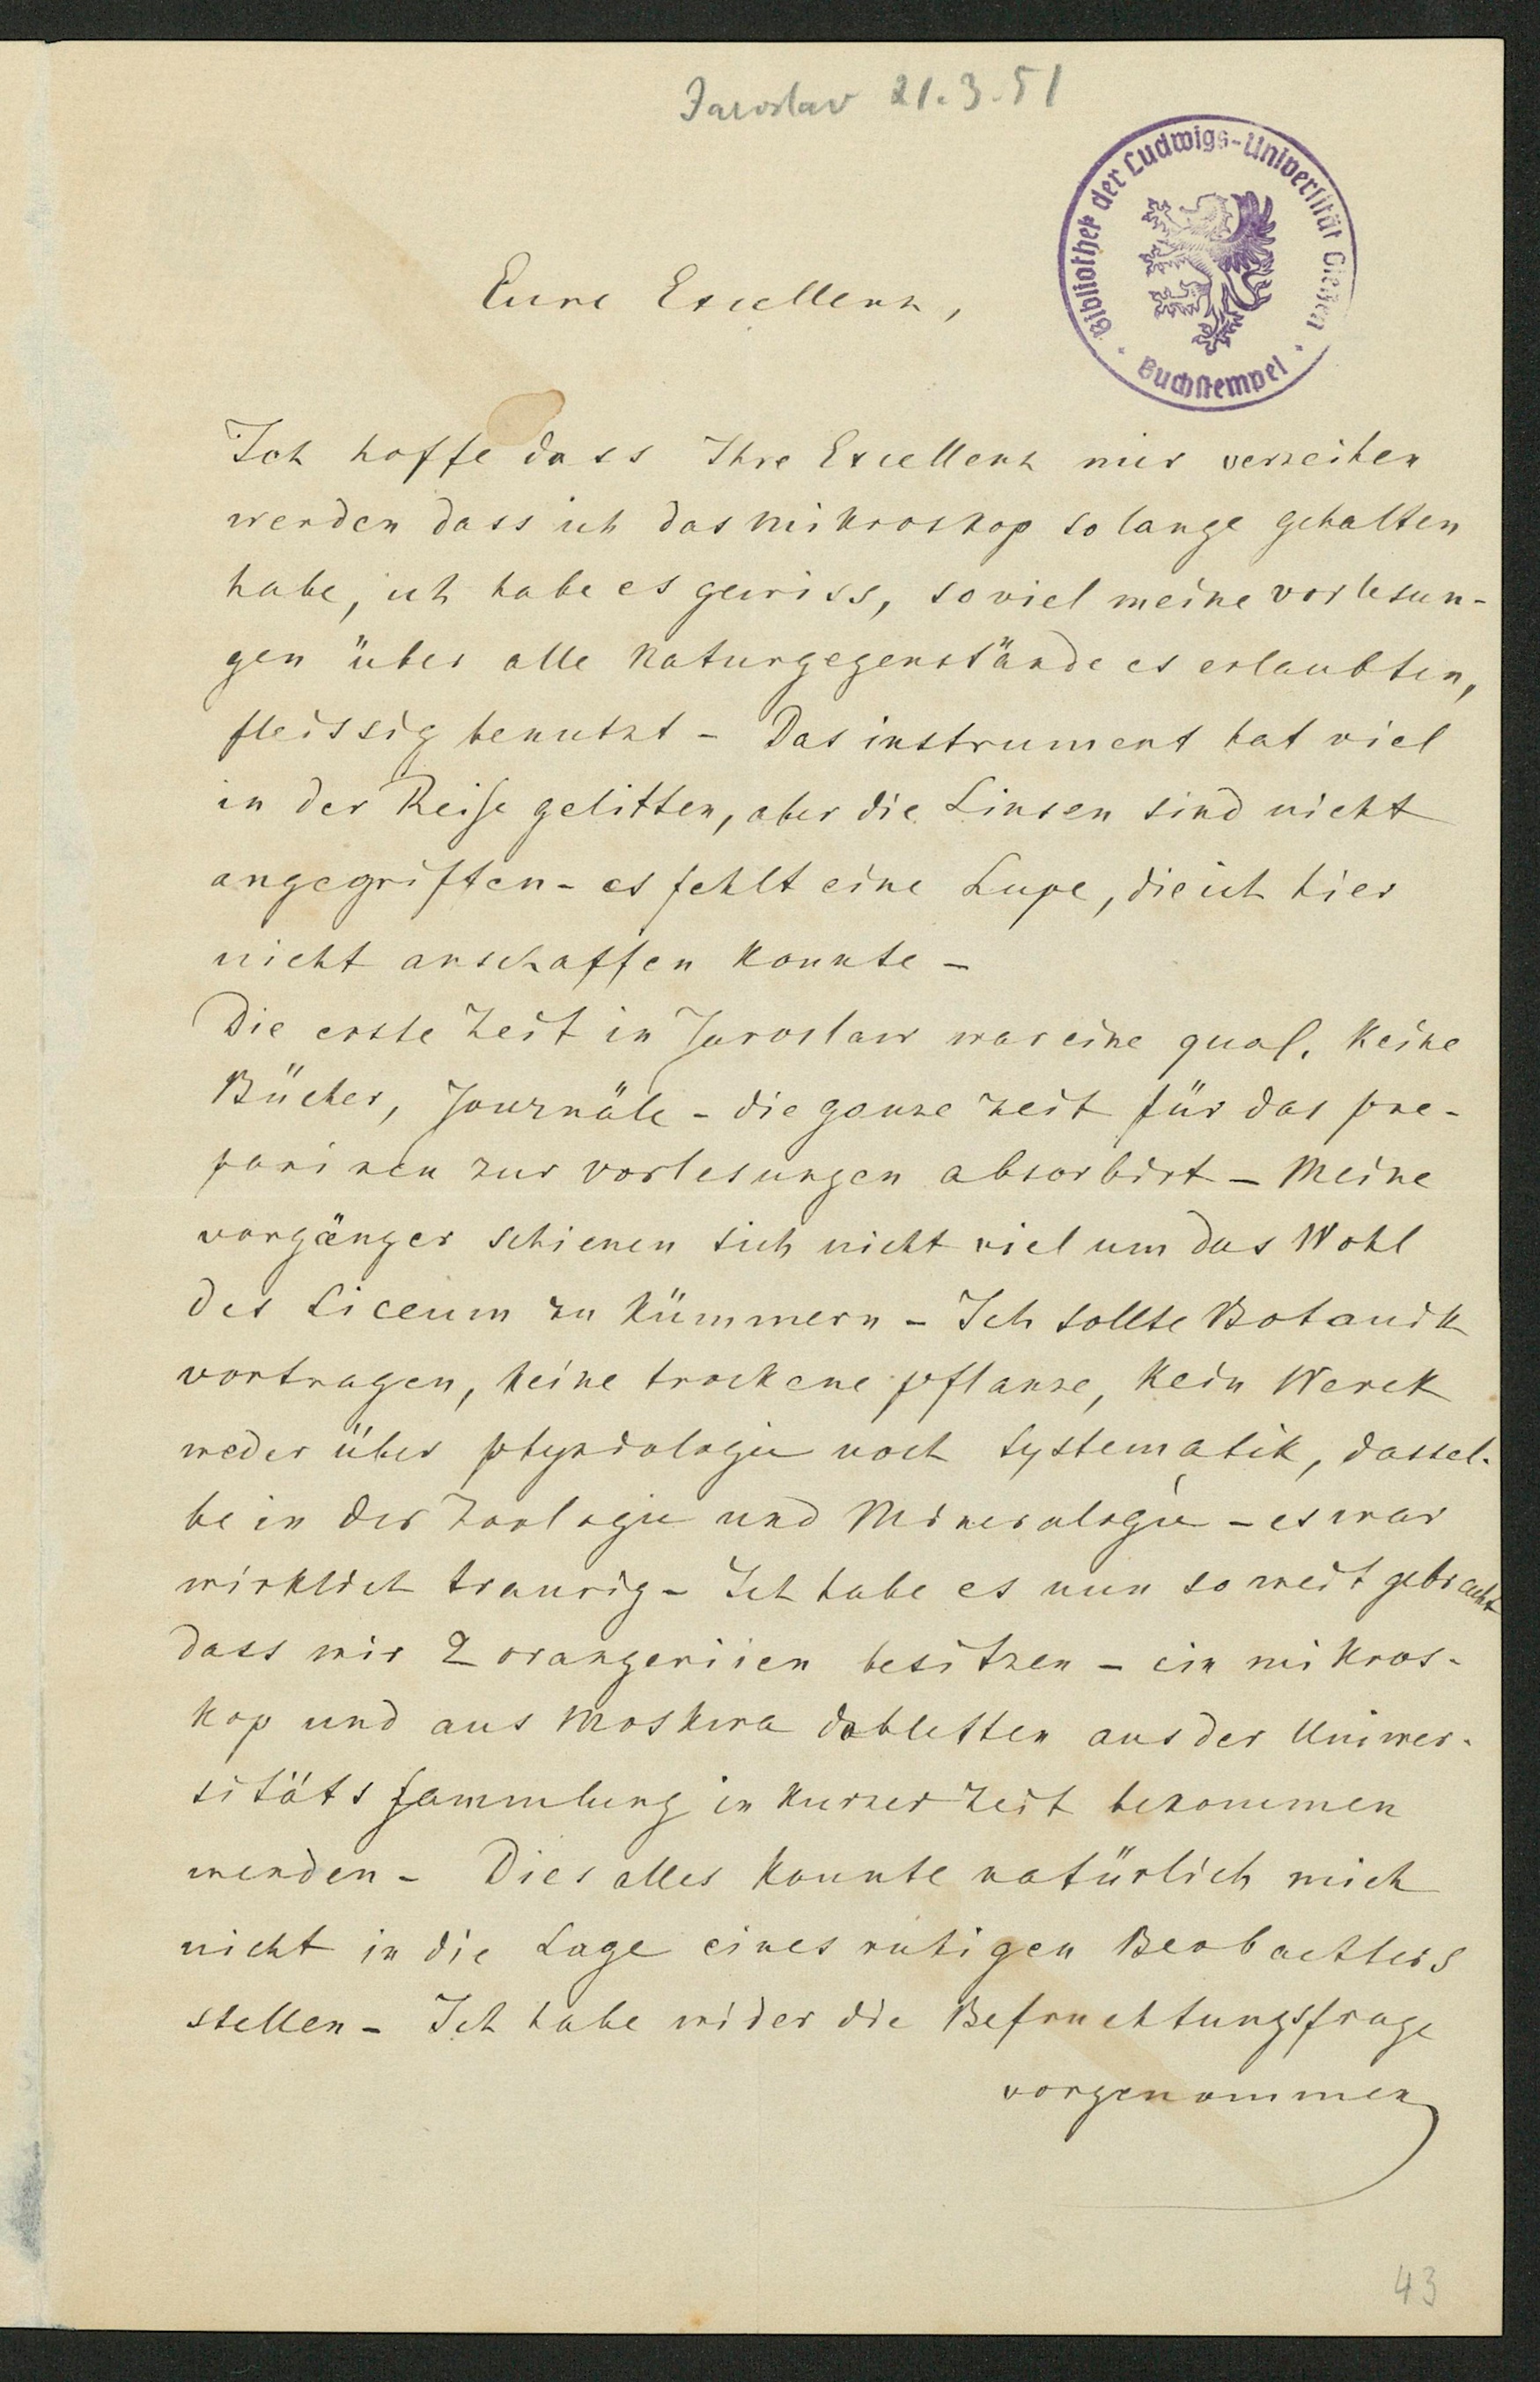 Jaroslav 21.3.51
Bibliothek der Ludwigs-Universität Giessen
Buchstempel
Eure Excellenz,
Ich hoffe dass Ihre Excellenz mir verzeihen
werden dass ich das Mikroskop so lange gehalten
habe, ich habe es gewiss, soviel meine vorlesun-
gen über alle Naturgegenstände es erlaubten,
fleissig benutzt - Das instrument hat viel
in der Reise gelitten, aber die Linsen sind nicht
angegriffen - es fehlt eine Lupe, die ich hier
nicht anschaffen konnte -
Die erste Zeit in Jaroslaw war eine qual. Keine
Bücher, Journäle - die ganze Zeit für das pre-
pariren zur vorlesungen absorbirt - Meine
vorgänger schienen sich nicht viel um das Wohl
des Liceum zu kümmern - Ich sollte Botanik
vortragen, keine trockene pflanze, kein Werck
weder über physiologie noch Systematik, dassel-
be in der Zoologie und Mineralogie - es war
wirklich traurig - Ich habe es nun so weit gebracht
dass wir 2 orangeriien besitzen - ein mikros-
kop und aus Moskwa dobletten aus der Uniwer-
sitäts sammlung in kurzer Zeit bekommen
werden - Dies alles konnte natürlich mich
nicht in die Lage eines ruhigen Beobachters
stellen - Ich habe wider die Befruchtungsfrage
vorgenommen
43